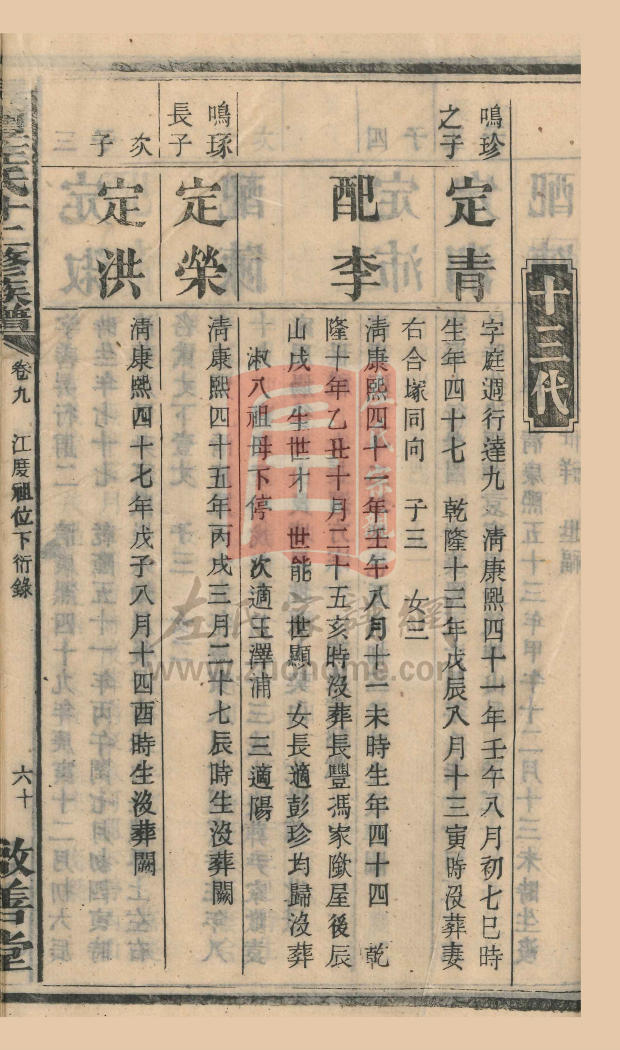 十三代
鳴珍之子
定青
字庭週行達九 清康熙四十一年壬午八月初七巳時
生年四十七 乾隆十三年戊辰八月十三寅時没葬妻
右合塚同向 子三 女三
配李
清康熙四十一年壬午八月十一未時生年四十四 乾
隆十年乙丑十月二十五亥時没葬長豐馮家歘屋後辰
山戌 生世才 世能 世顯 女長適彭珍均歸没葬
淑八祖母下停 次適王澤浦 三適陽
鳴琢長子
定榮
清康熙四十五年丙戌三月二十七辰時生没葬闕
次子
定洪
清康熙四十七年戊子八月十四酉時生没葬闕
左氏十二修族譜
卷九
江度祖位下衍錄
六十
敦善堂
左氏家譜網
www.zuohome.com